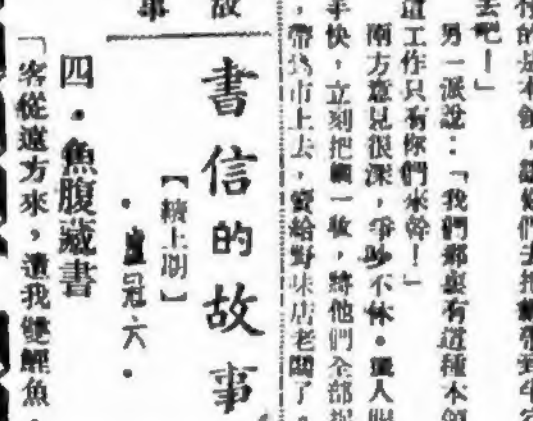 的是本領，
去吧！」
另一派說：「我們鄉裏有這種本領
這工作只有你們來幹！」
兩方意見很深，爭吵不休。獵人眼
快，立刻把網一收，將他們全部捉
，帶到市上去，賣給野味店老闆了。
故
事
書信的故事
【續上期】
•盧冠六•
四•魚腹藏書
「客從遠方來，遺我雙鯉魚，